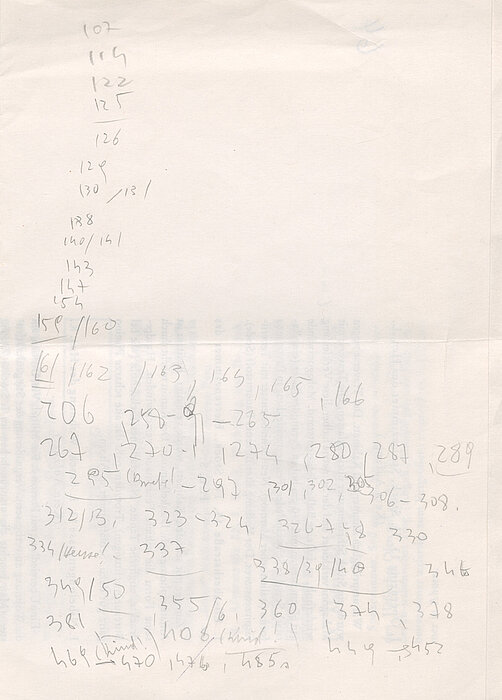 107
114
122
125
126
129
130/131
138
140/141
143
147
154
159/160
161/162/163, 164, 165, 166
206, 258- -265
267, 270-1, 274, 280, 287, 289
295 -297, 301, 302, 305, 306-308.
312/13, 323-324, 326-7, 8, 330
334/ 337, 338/39/40, 346
349/50, 355/6, 360, 374, 378
381, 408 449-3452
469-470, 476, 485s